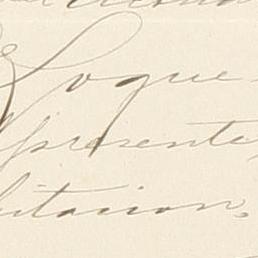 Loque
presente
bitacion,